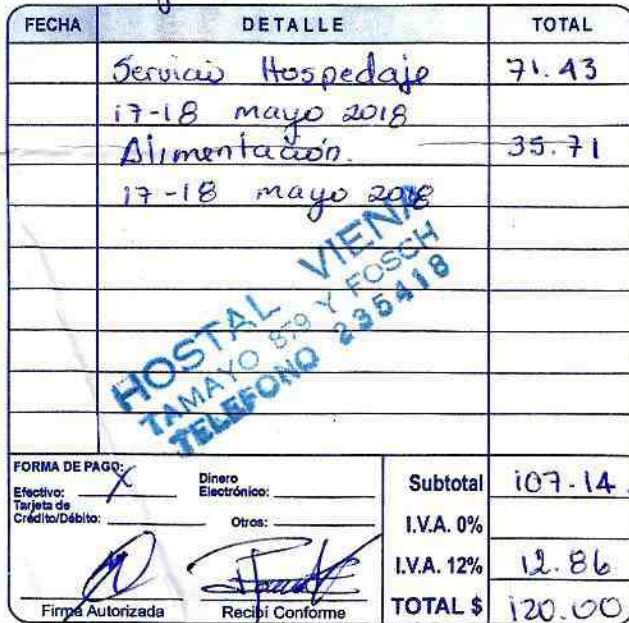 FECHA DETALLE TOTAL
Servicio Hospedaje 71.43
17-18 mayo 2018
Alimentación. 35.71
17-18 mayo 2018
HOSTAL VIENA
TAMAYO 879 Y FOSCH
TELEFONO 235418
FORMA DE PAGO:
Efectivo: X
Dinero Electrónico:
Tarjeta de Crédito/Débito:
Otros:
Firma Autorizada
Recibí Conforme
Subtotal 107.14
I.V.A. 0%
I.V.A. 12% 12.86
TOTAL $ 120.00